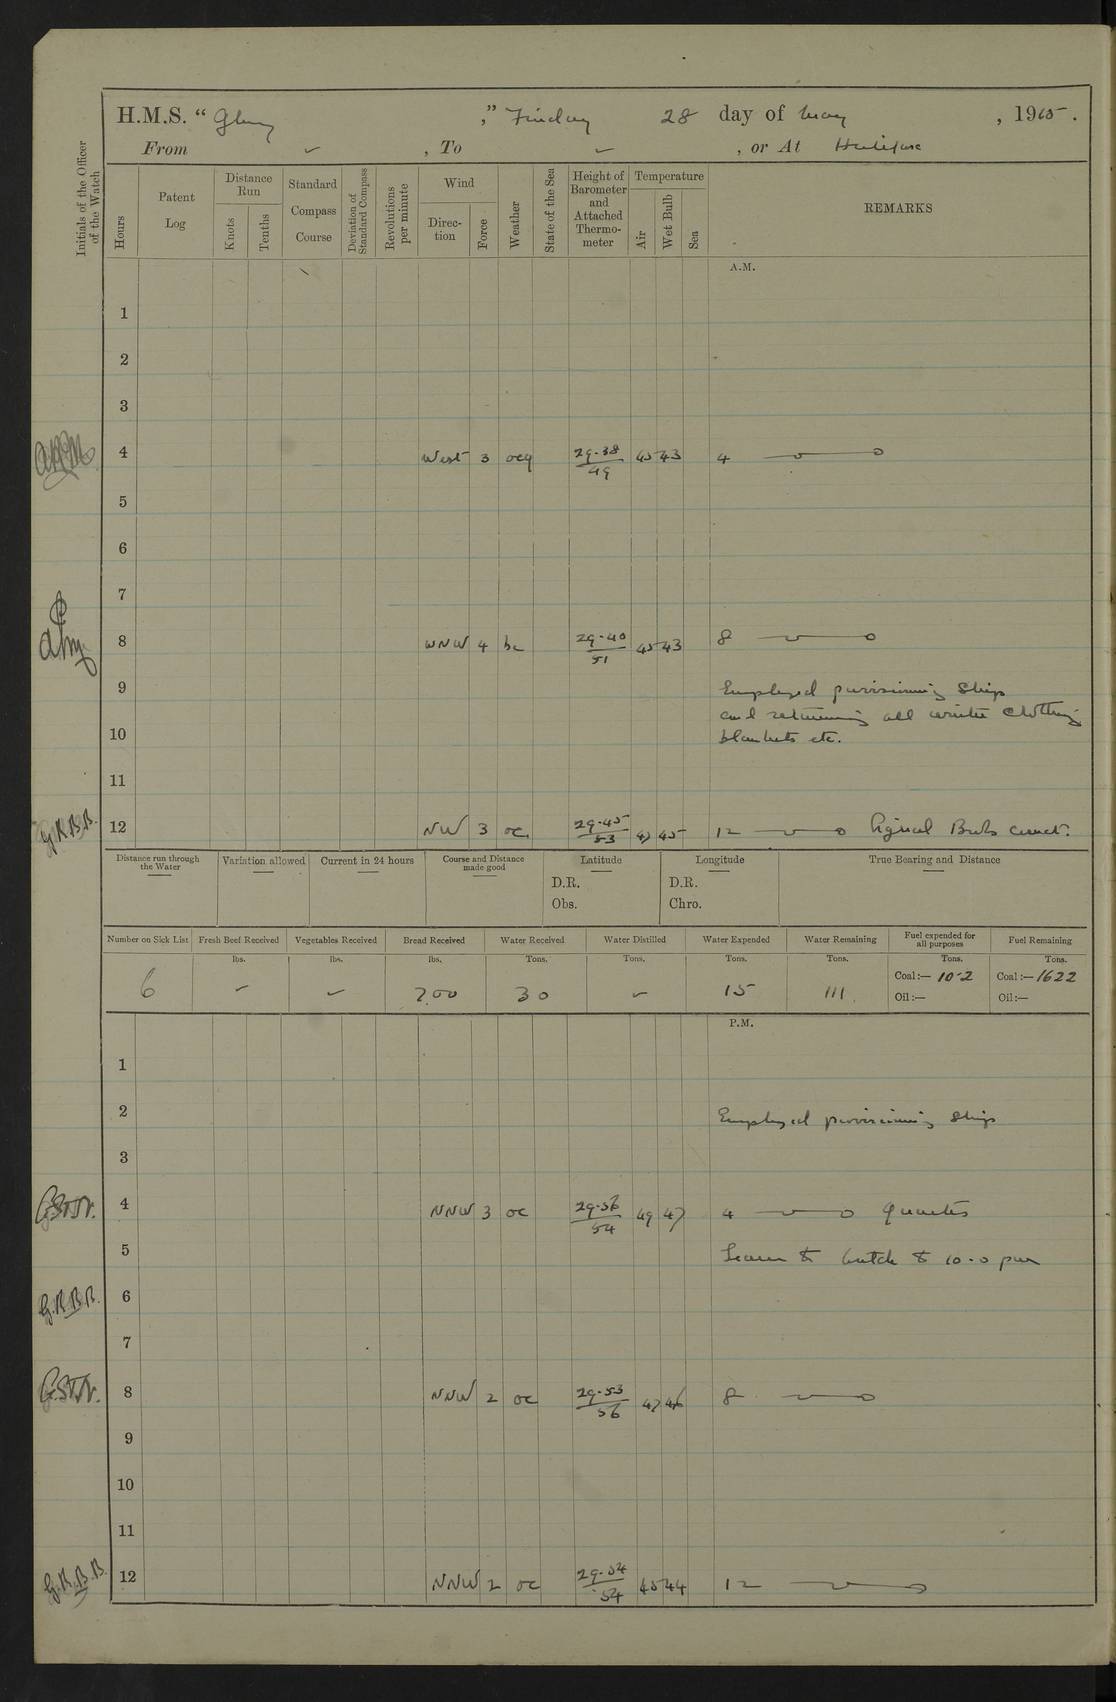 H.M.S. “ Glory ,” Friday 28 day of May , 1915 .
From ✓ , To ✓ , or At Halifax
Initials of the Officer of the Watch
Hours
Patent Log
Distance Run
Knots
Tenths
Standard Compass Course
Deviation of Standard Compass
Revolutions per minute
Wind
Direc-tion
Force
Weather
State of the Sea
Height of Barometer and Attached Thermo-meter
Temperature
Air
Wet Bulb
Sea
REMARKS
A.M.
1
2
3
4 West 3 ocq 29.38/49 45 43 4
5
6
7
8 WNW 4 bc 29.40/51 45 43 8
9 Employed provisioning Ship
and returning all winter clothing
10 blankets etc.
11
G.R.B.B. 12 NW 3 oc. 29.45/53 47 45 12
Distance run through the Water
Variation allowed
Current in 24 hours
Course and Distance made good
Latitude
D.R.
Obs.
Longitude
D.R.
Chro.
True Bearing and Distance
Number on Sick List
Fresh Beef Received
Vegetables Received
Bread Received
Water Received
Water Distilled
Water Expended
Water Remaining
Fuel expended for all purposes
Fuel Remaining
lbs. lbs. lbs. Tons. Tons. Tons. Tons. Tons. Tons.
6 ✓ ✓ 200 30 ✓ 15 111 Coal:— 10.2 Coal:— 1622
Oil:— Oil:—
P.M.
1
2 Employed provisioning Ship
3
4 NNW 3 oc 29.56/54 49 47 4 Quarters
5 Leave to watch to 10.0 pm
G.R.B.B. 6
7
8 NNW 2 oc 29.53/56 47 46 8
9
10
11
G.R.B.B. 12 NNW 2 oc 29.54/54 45 44 12